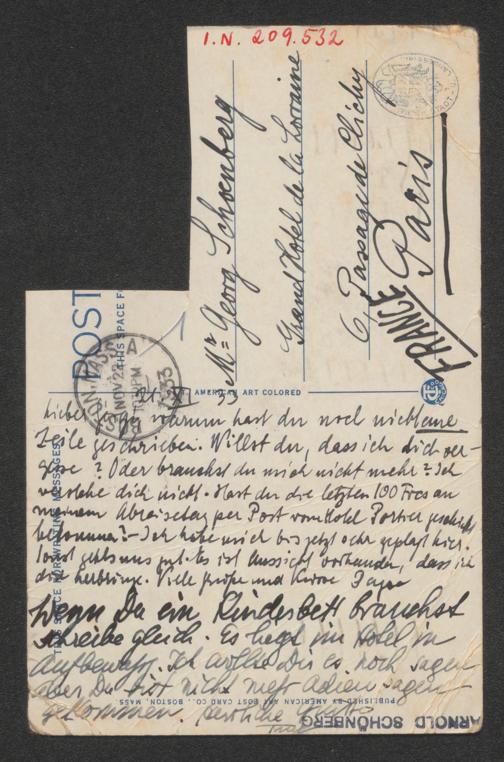 I.N. 209.532
Mr Georg Schoenberg
Grand Hotel de la Lorraine
6, Passage de Clichy
Paris
FRANCE
POST
THIS SPACE F
THIS SPACE FOR WRITING MESSAGES
BOSTON, MASS. NOV 22 PM 1933
AMERICAN ART COLORED
21. XI. 33
Lieber warum hast du noch nicht eine
Zeile geschrieben. Willst du, dass ich dich ver-
gesse? Oder brauchst du mich nicht mehr? Ich
verstehe dich nicht. Hast du die letzten 100 Frcs an
meinem Abreisetag per Post vom Hotel Portier geschickt
bekommen? – Ich habe mich bis jetzt sehr geplagt hier.
Sonst gehts uns gut. Es ist Aussicht vorhanden, dass ich
dich herbringe. Viele Grüße und Küsse Papa
Wenn Du ein Kinderbett brauchst
schreibe gleich. Es liegt im Hotel in
Aufbewahr. Ich wollte Dir es noch sagen
aber Du bist nicht mehr adieu sagen
gekommen. Herzliche
PUBLISHED BY AMERICAN ART POST CARD CO., BOSTON, MASS
ARNOLD SCHÖNBERG